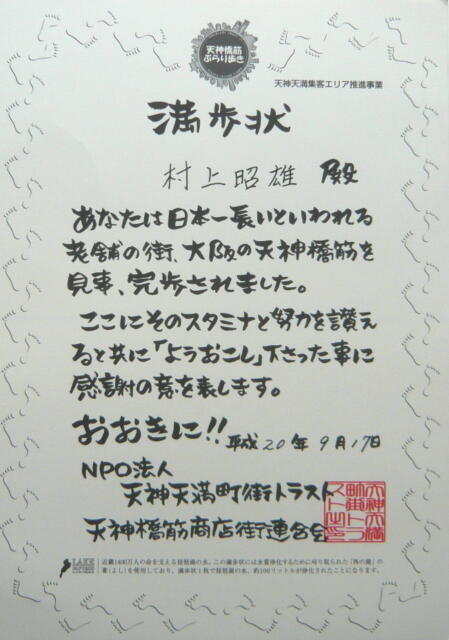 天神橋筋
ぶらり歩き
天神天満集客エリア推進事業
満歩状
村上昭雄 殿
あなたは日本一長いといわれる
老舗の街、大阪の天神橋筋を
見事、完歩されました。
ここにそのスタミナと努力を讃え
ると共に「ようおこし」下さった事に
感謝の意を表します。
おおきに!! 平成20年9月17日
NPO法人
天神天満町街トラスト
天神橋筋商店街連合会
LAKE
近畿1400万人の命を支える琵琶湖の水。この満歩状には水質浄化するために刈り取られた「西の湖」の
葦(よし)を使用しており、満歩状1枚で琵琶湖の水、約100リットルが浄化されたことになります。